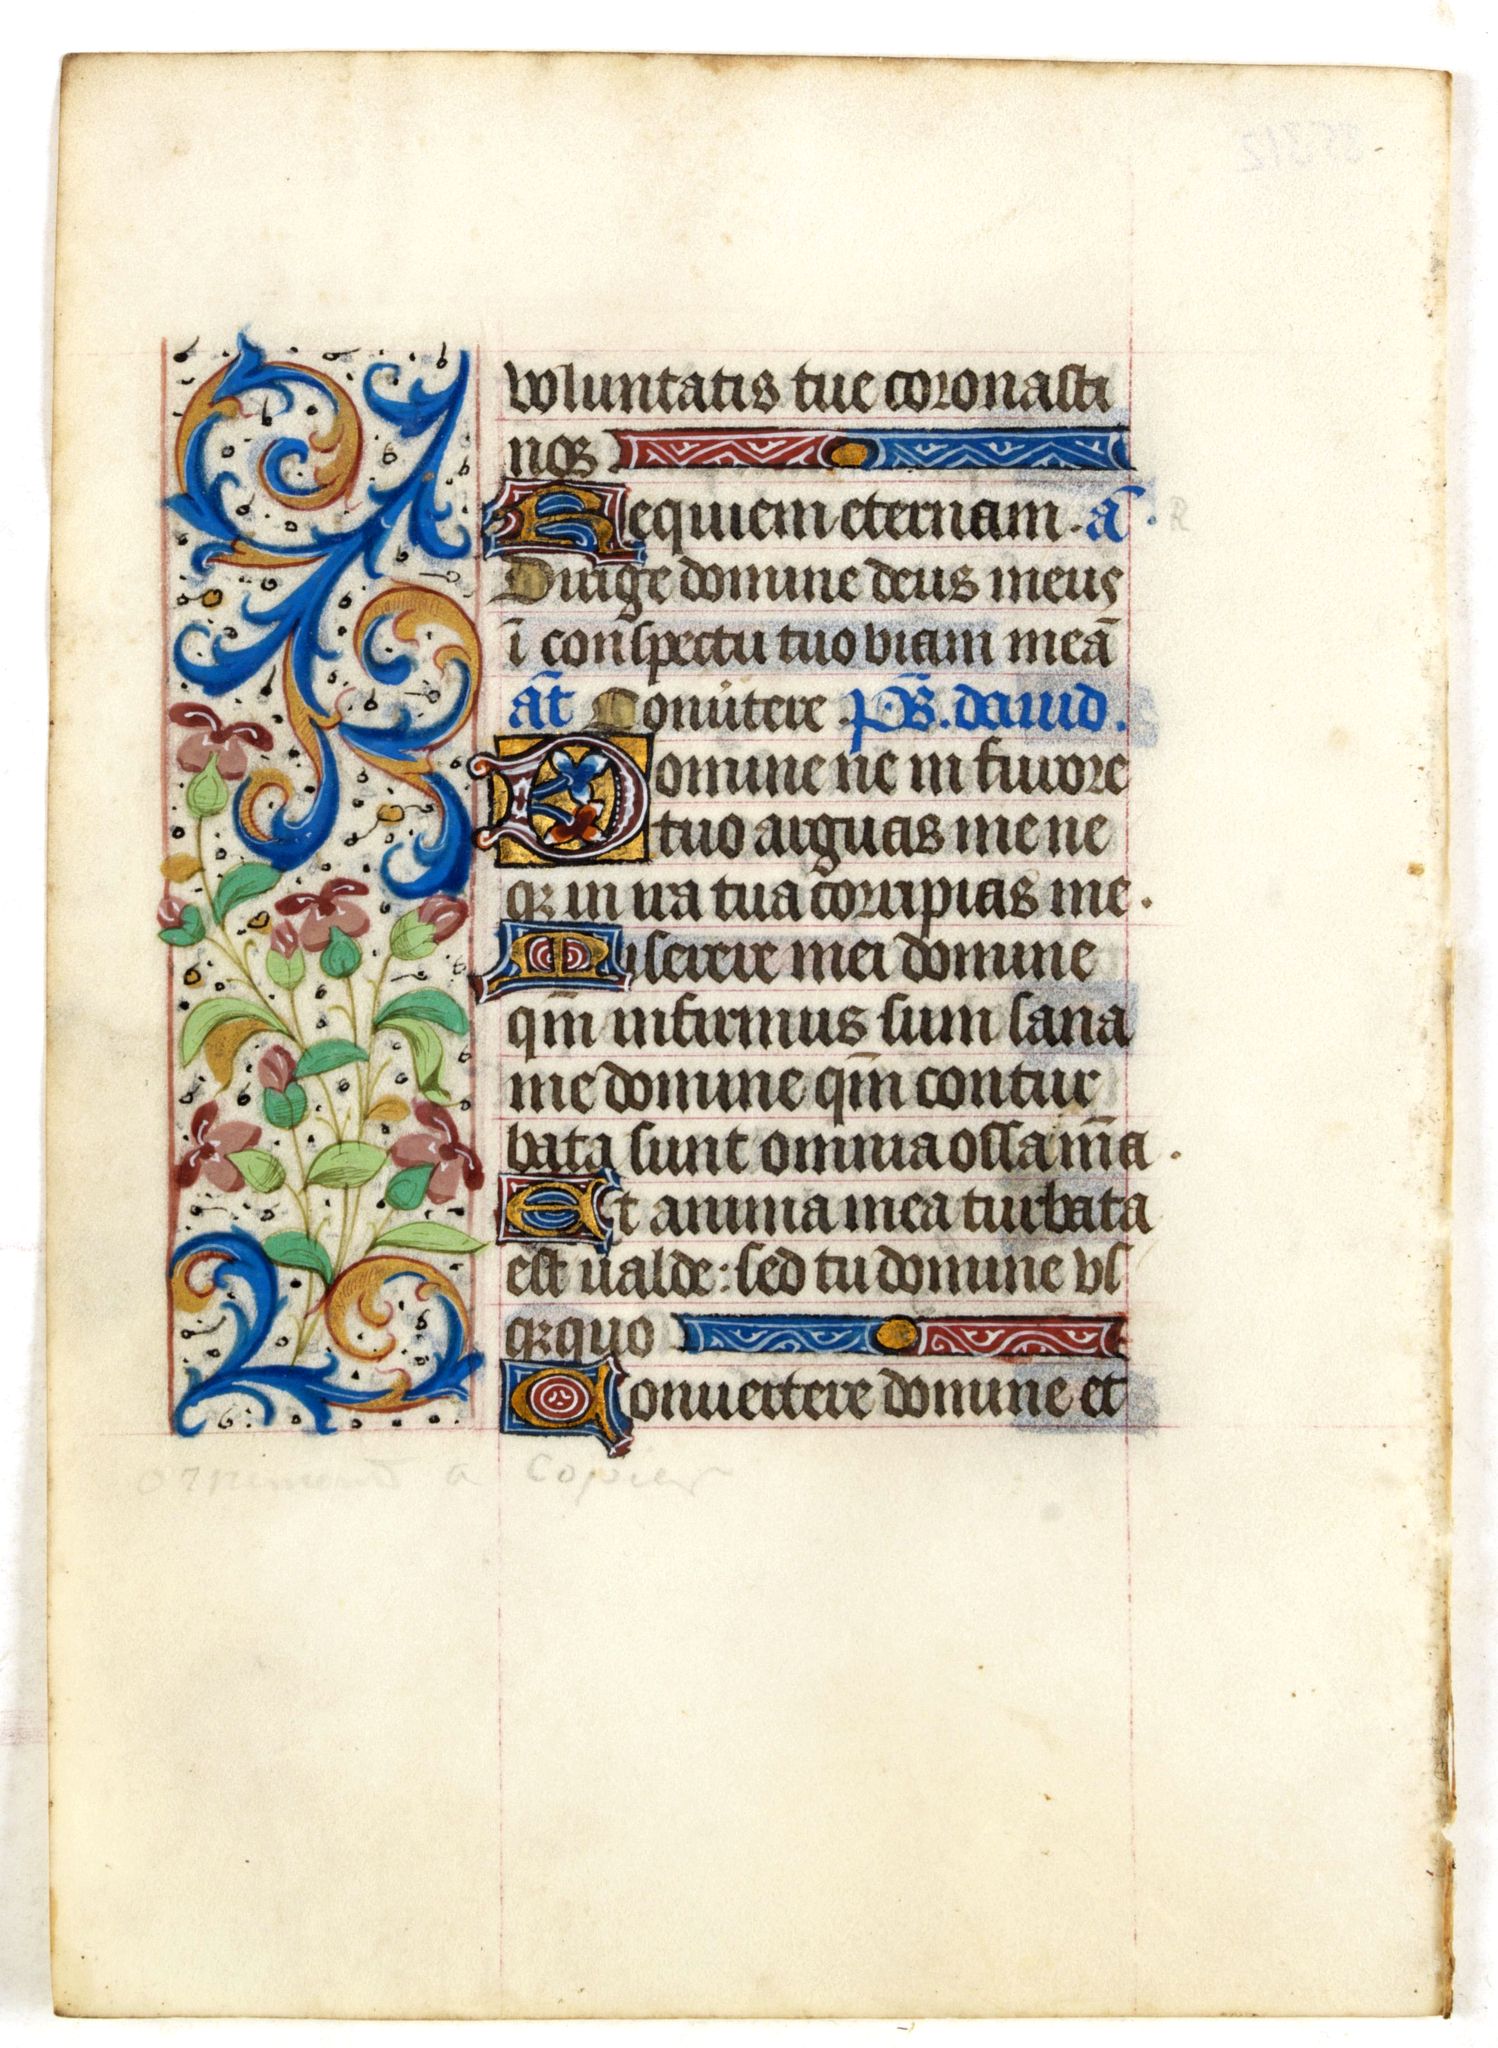 voluntatis tue coronasti
nos
Requiem eternam. añ.
R
Dirige domine deus meus
ī conspectu tuo viam meā
añt Conūtere .p̄s. dauid.
Domine ne in furore
tuo arguas me ne
qꝫ in ira tua corripias me.
Miserere mei domine
qm̄ infirmus sum sana
me domine qm̄ contur
bata sunt omnia ossa m̄a.
Et anima mea turbata
est ualde: sed tu domine vs
qꝫquo
Conuertere domine et
ornement a copier